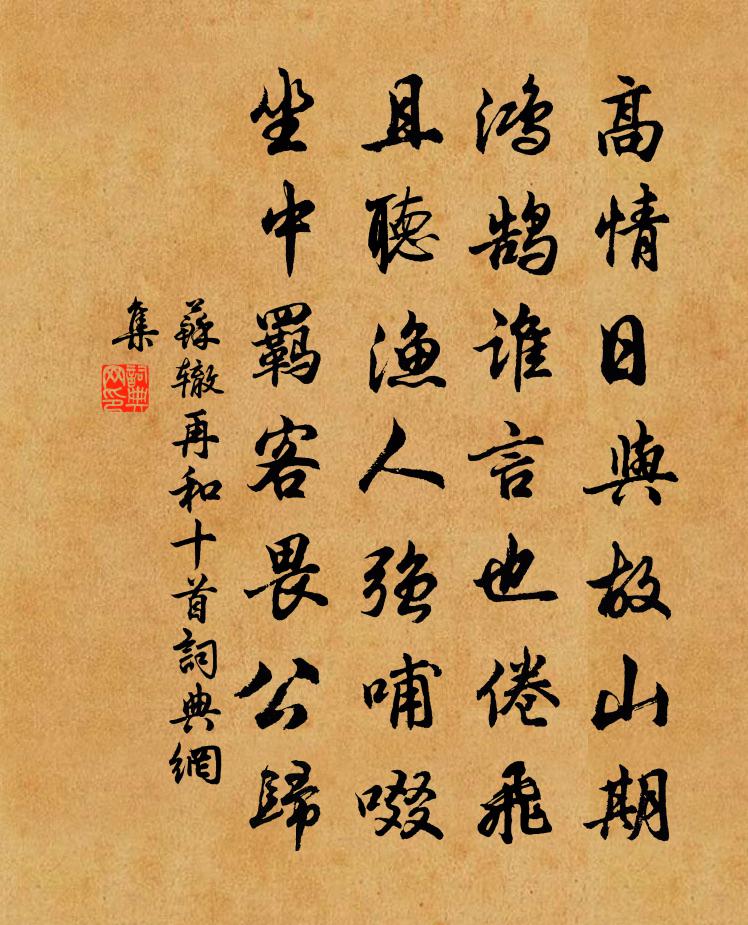 高情日與故山期
鴻鹄誰言也倦飛
且聽漁人強哺啜
坐中羈客畏公歸
蘇辙再和十首詞典網
集
詞典
网印